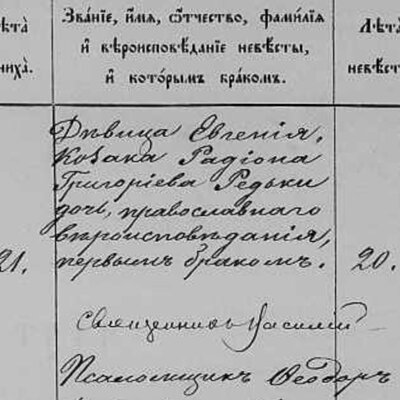 Звáнїе, и́мѧ, ѻ́тчество, фамилїѧ
и҆ вѣроисповѣ́данїе невѣ́сты,
и҆ кото́рымъ бра́комъ.
Лѣ́та
невѣ́ст
ѣ́та
ниха̀.
Дѣвица Евгенія,
Козака Радіона
Григоріева Редьки
дочь, православнаго
вѣроисповѣданія,
первымъ бракомъ.
21.
20.
Священникъ Василій
Псаломщикъ Ѳеодоръ